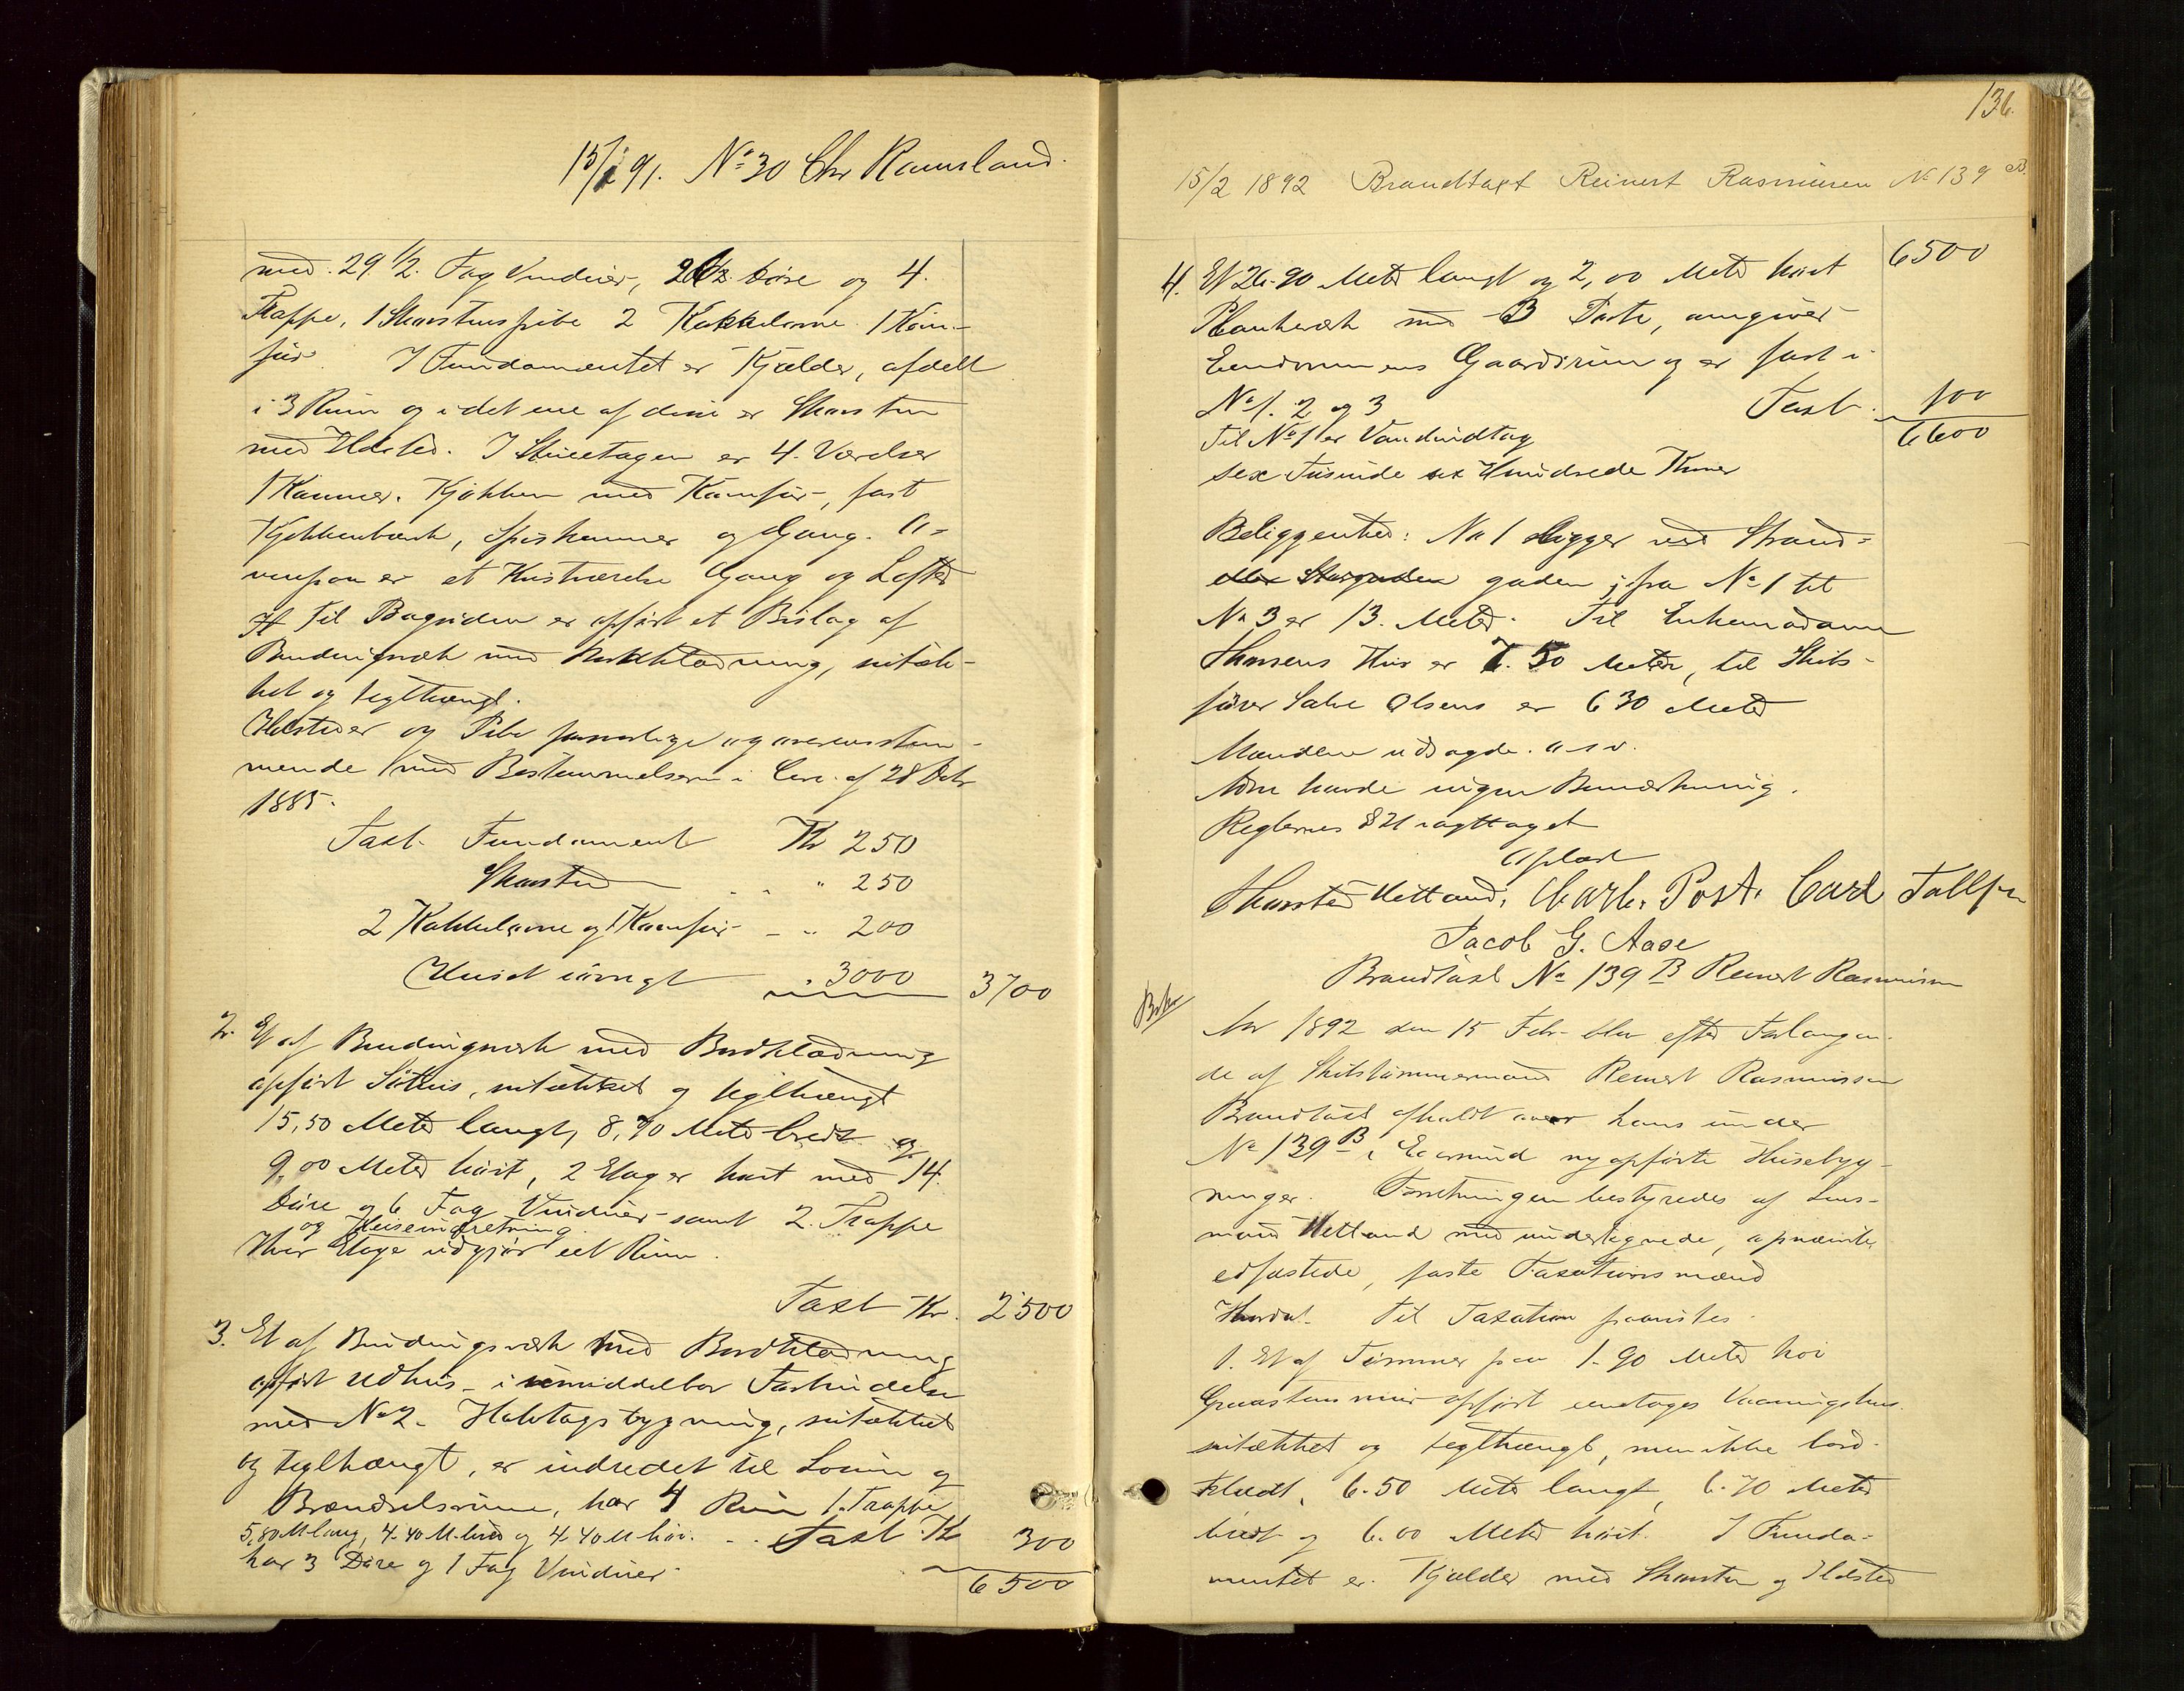 15/ 91. No 30 Chr Ramsland.
med 29 1/2. Fag Vinduer, Döre og 4.
Trappe, 1 Skorstenspibe 2 Kakkelovne 1 Kom-
für. I Fundamentet er Kjælder, afdelt
i 3 Rum og i det ene af disse er Skorsten
med Ildsted. I Stueetagen er 4. Værelser
1 Kammer. Kjøkken med Komfür, fast
Kjøkkenbænk, Spiskammer og Gang. O-
venpaa er et Kvistværelse Gang og Lofter
Til Bagsiden er opført et Bislag af
Bindingsværk med Bordklædning, sutæk-
ket og teglhængt.
Ildsteder og Pibe forsvarlige og overensstem-
mende med Bestemmelserne i Circ. af 28 Octr
1885.
Taxt. Fundament Kr 250
Skorsten " 250
2 Kakkelovne og 1 Komfür - " 200
Huset iövrigt " 3000 3700
2. Et af Bindingsværk med Bordklædning
opført Söhus, sutækket og teglhængt
15,50 Meter langt, 8,70 Meter bredt og
9,00 Meter höit, 2 Etager høit med 14.
Döre og 6 Fag Vinduer samt 2. Trappe
og Heiseindretning
Hver Etage udgjør eet Rum.
Taxt Kr. 2500
3. Et af Bindingsværk med Bordklædning
opført Udhus - i umiddelbar Forbindelse
med No 2. Halvtagsbygning, sutækket
og teglhængt, er indredet til Locum og
Brændselsrum, har 4 Rum 1. Trappe
5,80 M lang, 4.40 M. bred og 4.40 M höi. - . Taxt Kr 300
har 3 Döre og 1 Fag Vinduer
6500
136.
15/2 1892 Brandtaxt Reinert Rasmussen No 139 B.
6500
4. Et 26.90 Meter langt og 2,00 Meter høit
Plankværk med 3 Porte, omgiver
Eiendommens Gaardsrum og er fast i
No 1. 2 og 3 Taxt. 100
Til No 1 er Vandindtag 6600
sex Tusinde sex Hundrede Kroner
Beliggenhed: No 1 ligger ved Strand-
gaden; fra No 1 til
No 3 er 13. Meter. Til Enkemadame
Thorsens Hus er 7.50 Meter, til Skibs-
förer Salve Olsens er 6 30 Meter
Mændene udsagde. o-s-v.
havde ingen Bemærkning.
Reglernes § 21 iagttaget
Oplæst
Thorsten Hetland. Charls. Post. Carl Tollfsen
Jacob G. Aase
Brandtaxt No 139 B Reinert Rasmussen
Aar 1892 den 15 Febr. blev efter Forlangen-
de af Skibstömmermand Reinert Rasmussen
Brandtaxt afholdt over hans under
No 139 B i Egersund nyopförte Husebyg-
ninger. Forretningen bestyredes af Lens-
mand Hetland med undertegnede, opnævnte,
edfæstede, faste Taxationsmænd
Til Taxation paavistes
1. Et af Tømmer paa 1.90 Meter höi
Graastensmur opført eenetages Vaaningshus.
sutækket og teglhængt, men ikke bord-
klædt, 6.50 Meter langt, 6.70 Meter
bredt og 6.00 Meter høit. I Funda-
mentet er Kjælder med Skorsten og Ildsted